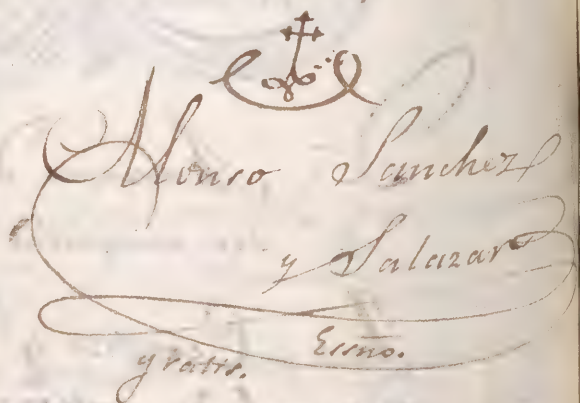 Alonso Sanchez
y Salazar
Essño.
gratis.